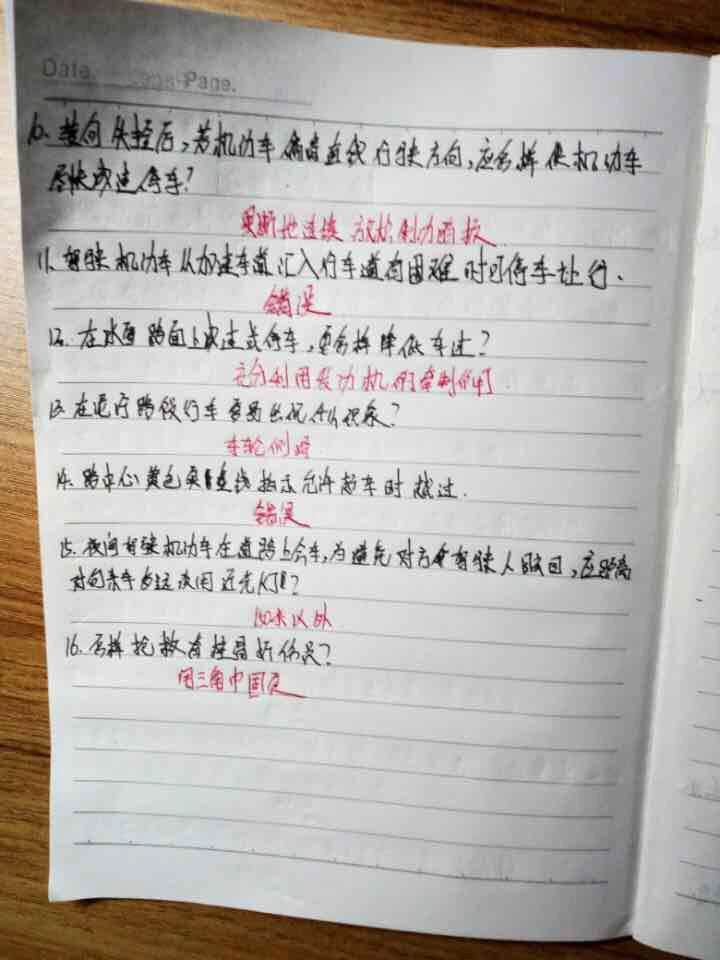 Date. Page.
10. 转向失控后,若机动车偏离直线行驶方向,应怎样使机动车
尽快减速停车?
果断地连续 放松制动踏板
11. 驾驶机动车从加速车道汇入行车道有困难时可停车让行.
错误
12. 在冰雪路面上减速或停车,要怎样降低车速?
充分利用发动机的牵制作用
13. 在泥泞路段行车容易出现什么现象?
车轮侧滑
14. 路中心黄色实线指示允许超车时越过.
错误
15. 夜间驾驶机动车在道路上会车,为避免对方驾驶人眩目,应距离
对向来车多远改用近光灯?
150米以外
16. 怎样抢救脊柱骨折伤员?
用三角巾固定